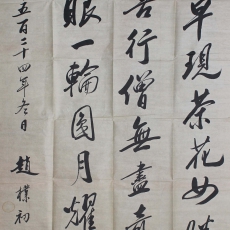 早現茶花女勝
苦行僧無盡奇
眼一輪圓月耀
五百二十四年冬日
趙樸初